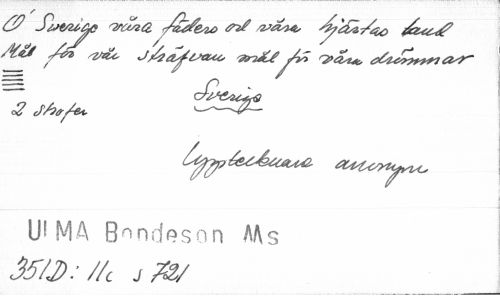 O' Sverige våra fäders och våra hjärtas land
Mål för vår sträfvan mål för våra drömmar
Sverige
2 strofer
Upptecknare anonym
ULMA Bondeson Ms
351D: 11c s 721